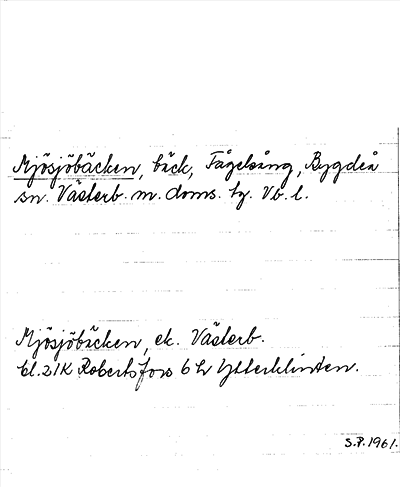 Mjösjöbäcken, bäck, Fågelsång, Bygdeå
sn. Västerb. m. doms. tg. Vb. l.
Mjösjöbäcken, ek. Västerb.
bl. 21K Robertsfors 6 h Ytterklinten.
S.P. 1961.